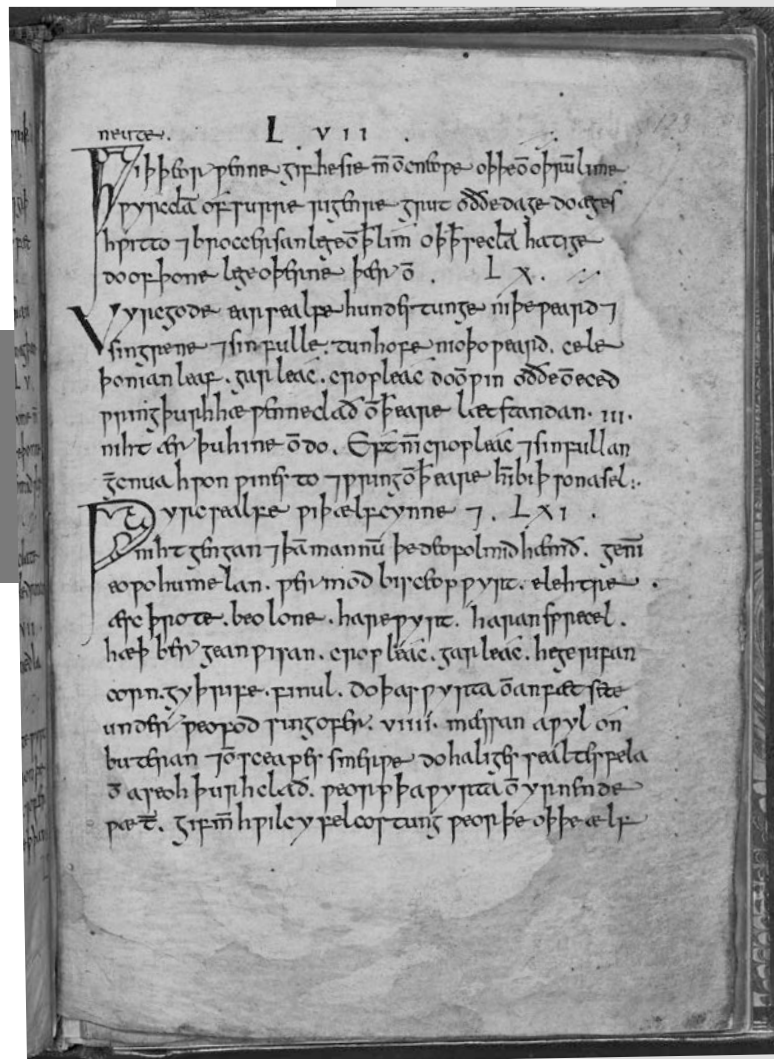 neurte. L VII
Ƿiþ þeor ƿenne gif he sie m̄ on eneoƿe oþþe on oþrū lime
ƿyrc clā of surre rigenre grut oððe dage do ages
hƿit to ⁊ brocces cersan lege on ꝥ lim oþ ꝥ se clā hatige
do of þone lege oþerne þær on. L X.
Ƿyrc gode eagsealfe hundes tunge niþeƿeard ⁊
singrene ⁊ sinfulle. tunhofe nioþoƿeard. cele
þonian leaf. garleac. cropleac do on ƿin oððe on eced
ƿring þurh hæƿenne clað on ꝥ eage læt standan. III.
niht ær þu hine on do. Eft nim cropleac ⁊ sinfullan
genua hƿon ƿines to ⁊ ƿring on ꝥ eage him biþ sona sel:.
Ƿyrc sealfe ƿiþ ælfcynne ⁊ . LXI .
nihtgengan ⁊ þā mannū þe deofol mid hæmð. genim
eoƿohumelan. ƿermod bisceopƿyrt. elehtre.
æscþrote. beolone. hareƿyrt. haransprecel.
hæþbergean ƿisan. cropleac. garleac. hegerifan
corn. gyþrife. finul. do þas ƿyrta on an fæt sete
under ƿeofod sing ofer. VIIII. mæssan aƿyl on
buteran ⁊ on sceapes smerƿe do haliges sealtes fela
on aseoh þurh clað. ƿeorp þa ƿyrta on yrnende
ƿæter. gif men hƿilcu yfel costung ƿeorþe oþþe ælf